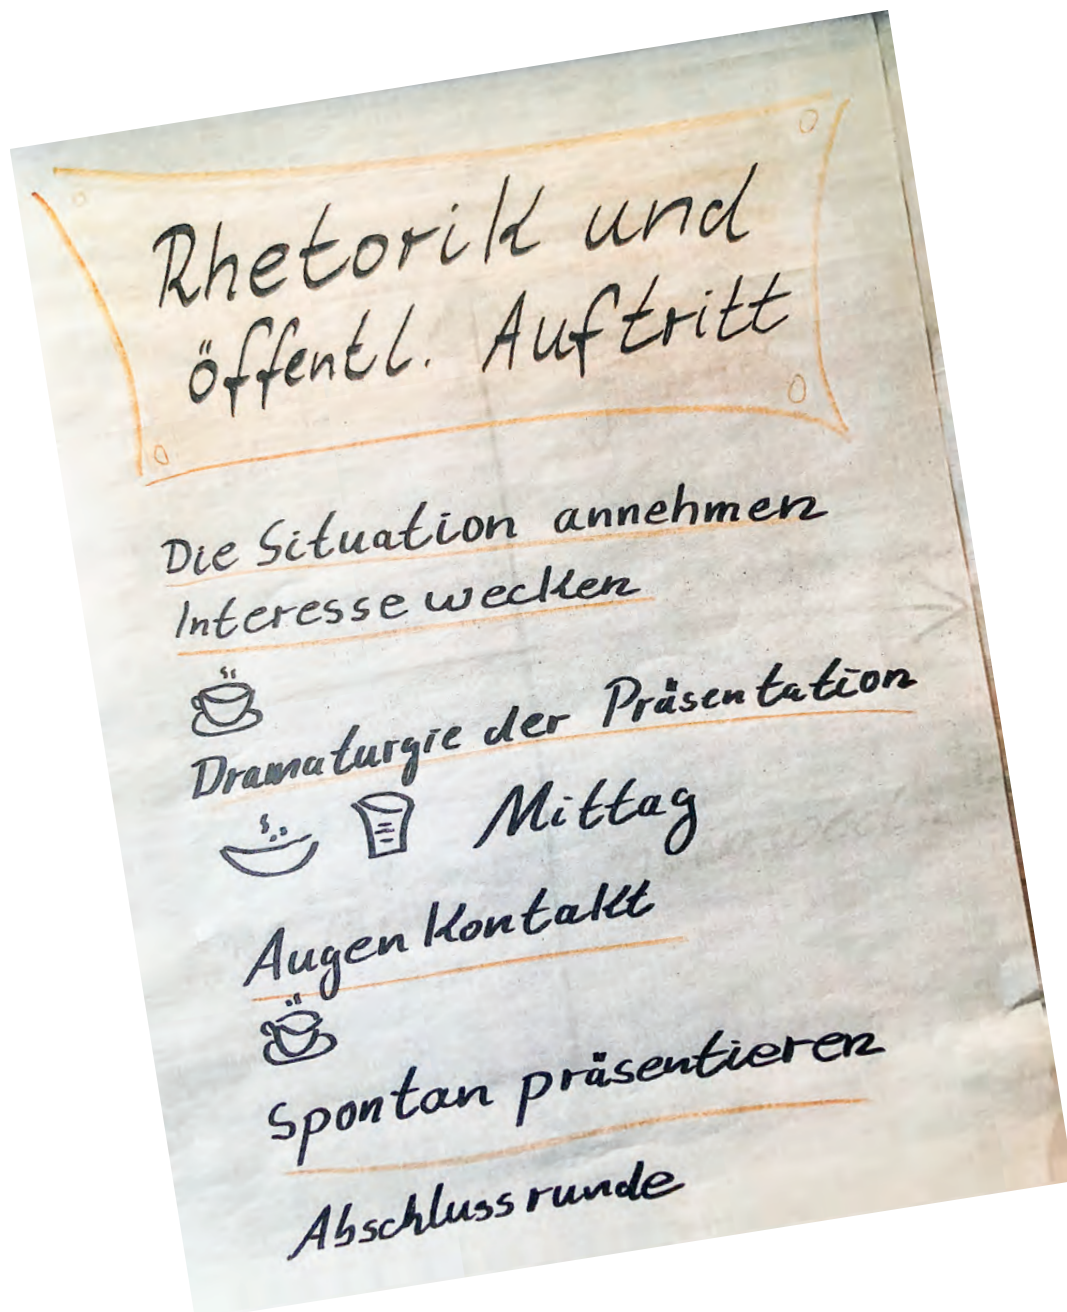 Rhetorik und
öffentl. Auftritt
Die Situation annehmen
Interesse wecken
Dramaturgie der Präsentation
Mittag
Augenkontakt
Spontan präsentieren
Abschlussrunde